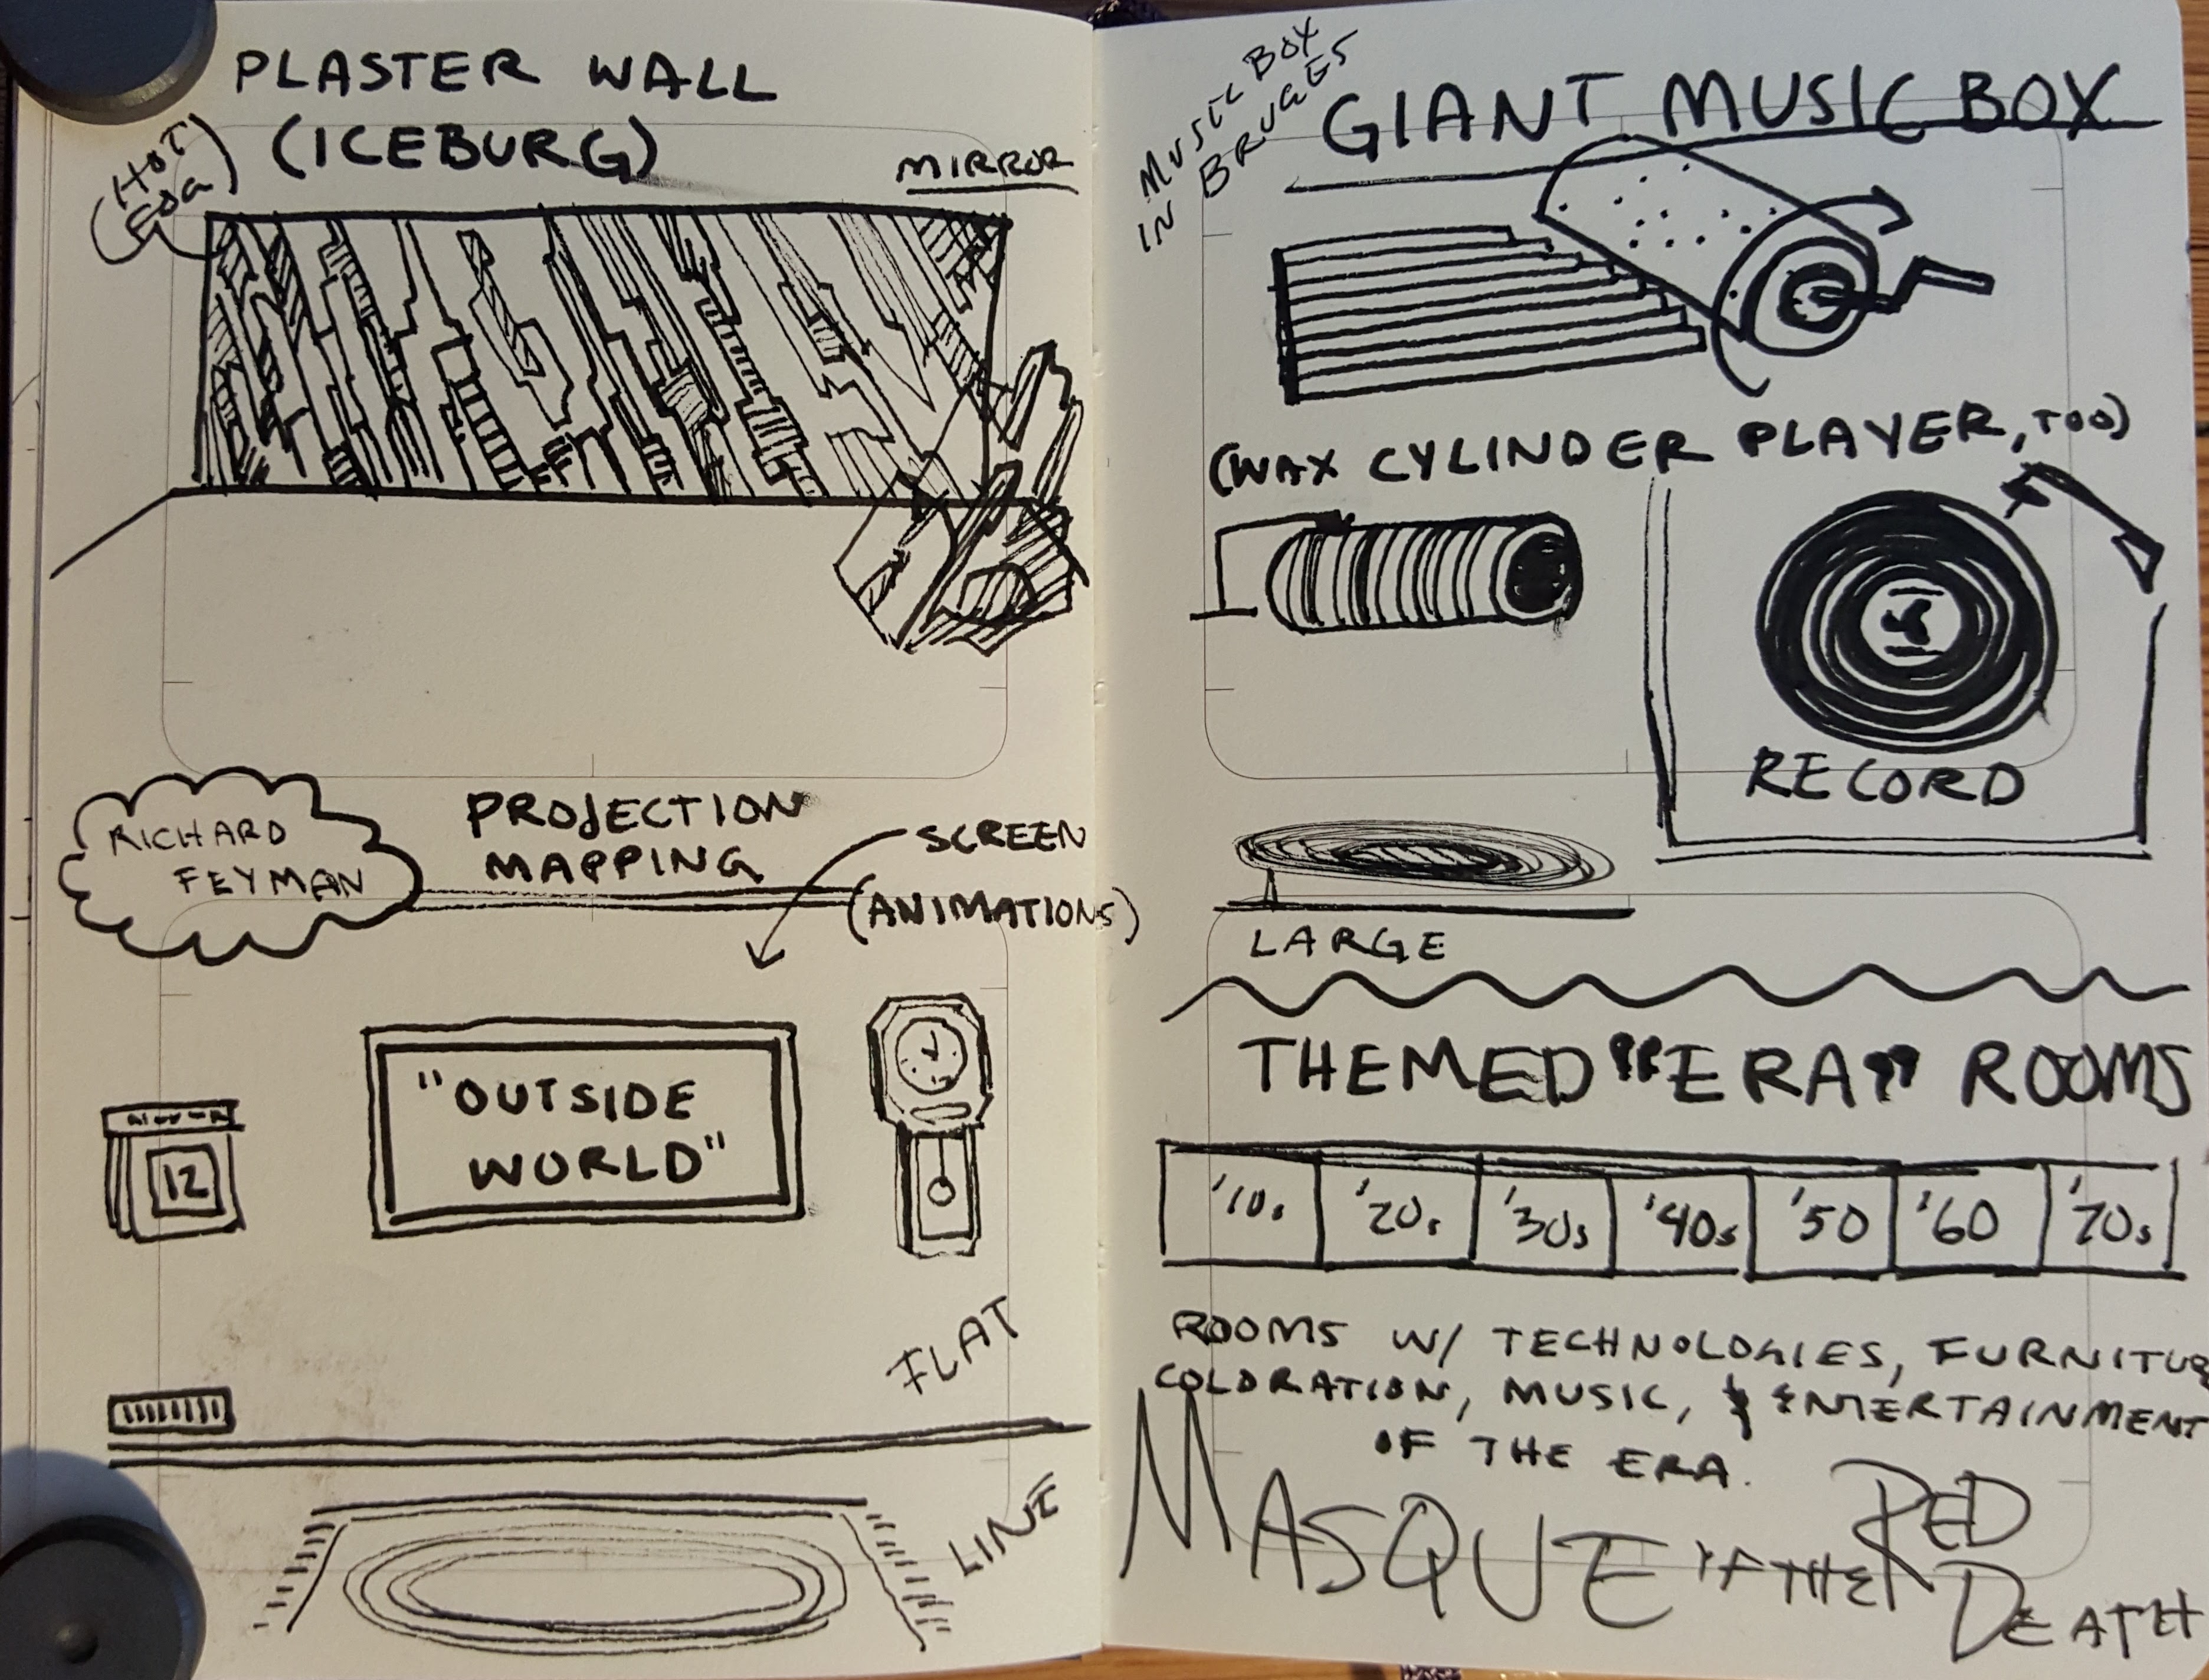 PLASTER WALL
(ICEBURG)
(HOT
MIRROR
RICHARD
FEYMAN
PROJECTION
MAPPING
SCREEN
(ANIMATIONS)
"OUTSIDE
WORLD"
12
FLAT
LINE
MUSIC BOX
IN BRUGES
GIANT MUSIC BOX
(WAX CYLINDER PLAYER, TOO)
RECORD
LARGE
THEMED "ERA" ROOMS
'10s '20s '30s '40s '50 '60 '70s
ROOMS W/ TECHNOLOGIES, FURNITUR
COLORATION, MUSIC, & ENTERTAINMENT
OF THE ERA.
MASQUE OF THE RED
DEATH